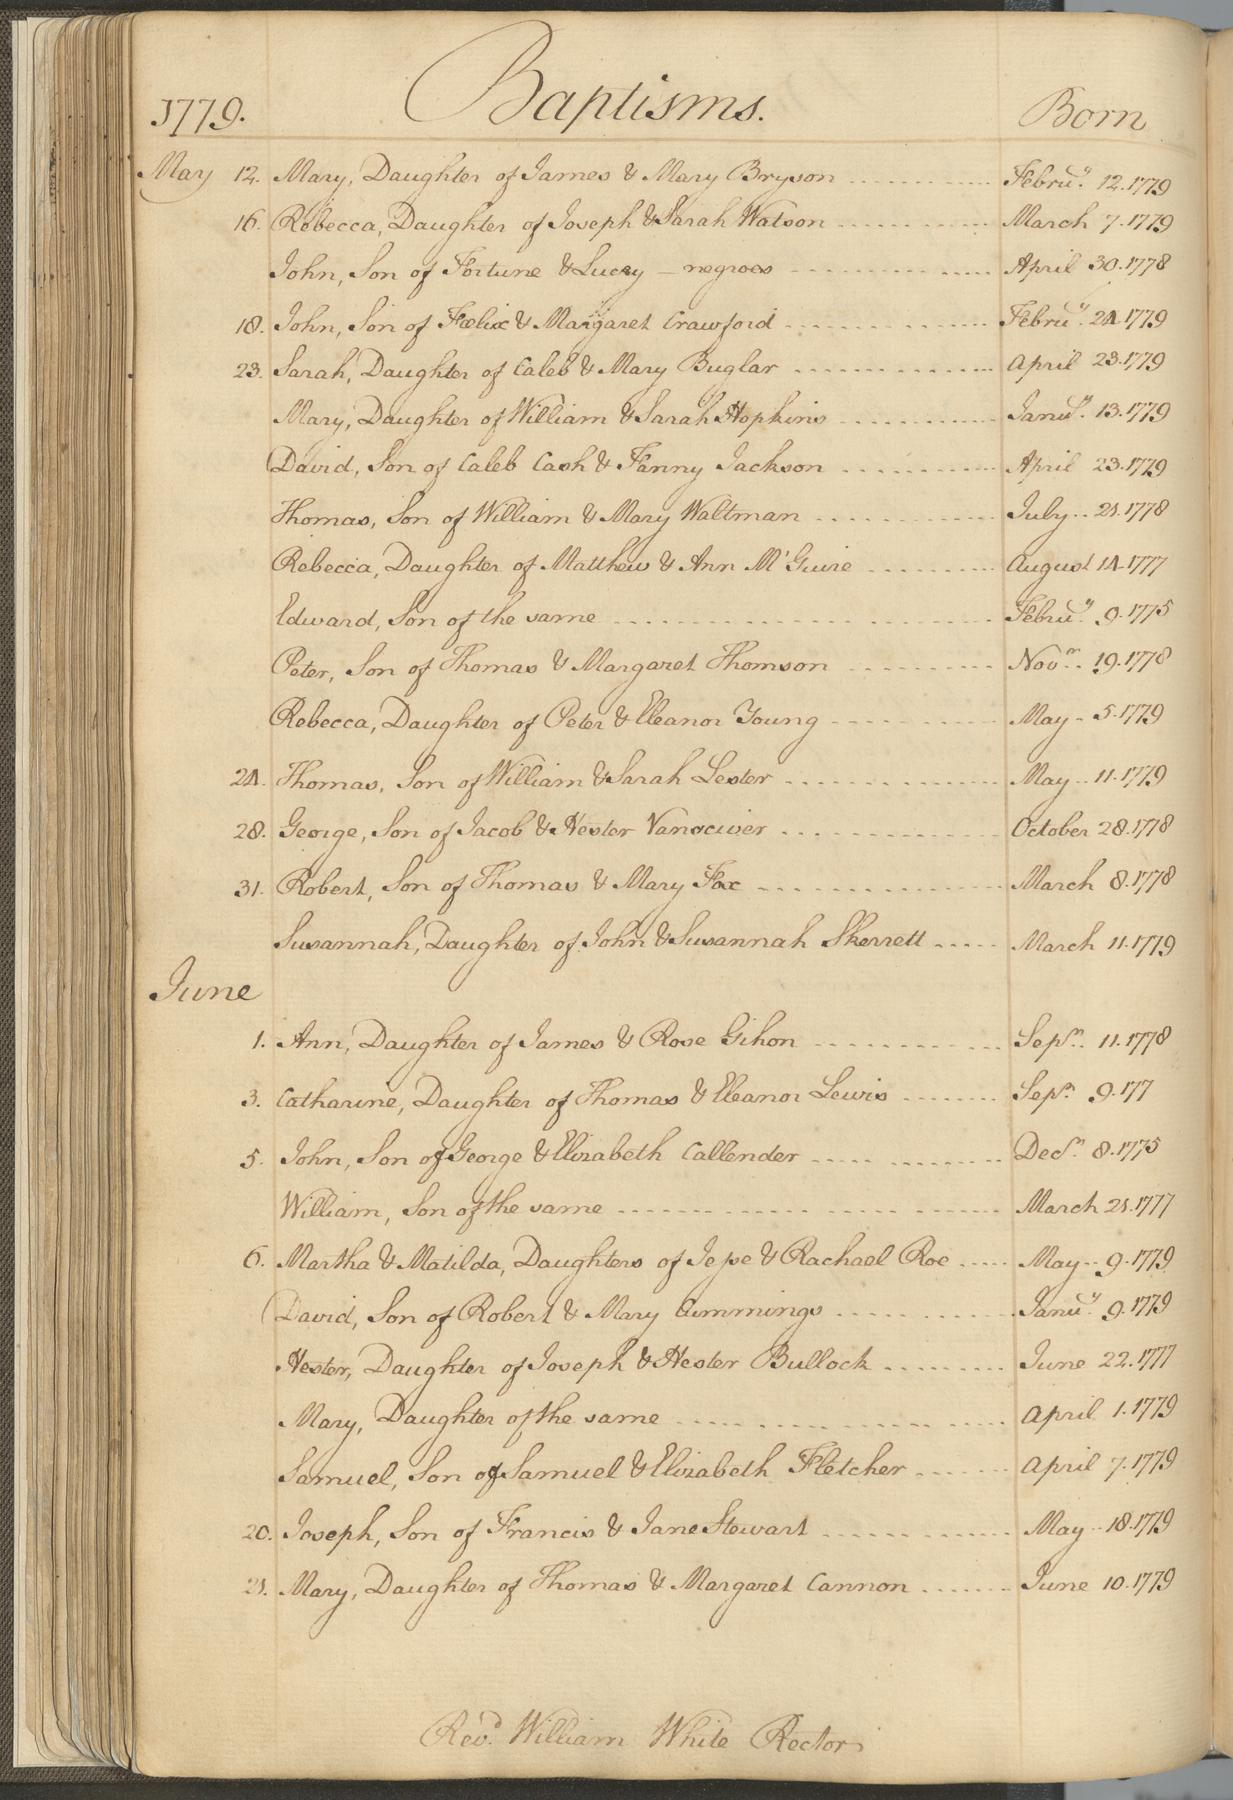 1779. Baptisms. Born
May 12. Mary, Daughter of James & Mary Bryson Febru.y 12. 1779
16. Rebecca, Daughter of Joseph & Sarah Watson March 7. 1779
John, Son of Fortune & Lucey – negroes April 30. 1778
18. John, Son of Fœlix & Margaret Crawford Febru.y 24. 1779
23. Sarah, Daughter of Caleb & Mary Buglar April 23. 1779
Mary, Daughter of William & Sarah Hopkins Janu.y 13. 1779
David, Son of Caleb Cash & Fanny Jackson April 23. 1779
Thomas, Son of William & Mary Waltman July 21. 1778
Rebecca, Daughter of Matthew & Ann M'Guire August 14. 1777
Edward, Son of the same Febru.y 9. 1775
Peter, Son of Thomas & Margaret Thomson Nov.r 19. 1778
Rebecca, Daughter of Peter & Eleanor Young May 5. 1779
24. Thomas, Son of William & Sarah Lester May 11. 1779
28. George, Son of Jacob & Hester Vansciver October 28. 1778
31. Robert, Son of Thomas & Mary Fox March 8. 1778
Susannah, Daughter of John & Susannah Skerrett March 11. 1779
June
1. Ann, Daughter of James & Rose Gihon Sep.r 11. 1778
3. Catharine, Daughter of Thomas & Eleanor Lewis Sep.r 9. 177
5. John, Son of George & Elizabeth Callender Dec.r 8. 1775
William, Son of the same March 21. 1777
6. Martha & Matilda, Daughters of Jesse & Rachael Roe May 9. 1779
David, Son of Robert & Mary Cummings Janu.y 9. 1779
Hester, Daughter of Joseph & Hester Bullock June 22. 1777
Mary, Daughter of the same April 1. 1779
Samuel, Son of Samuel & Elizabeth Fletcher April 7. 1779
20. Joseph, Son of Francis & Jane Stewart May 18. 1779
21. Mary, Daughter of Thomas & Margaret Cannon June 10. 1779
Rev.d William White Rector